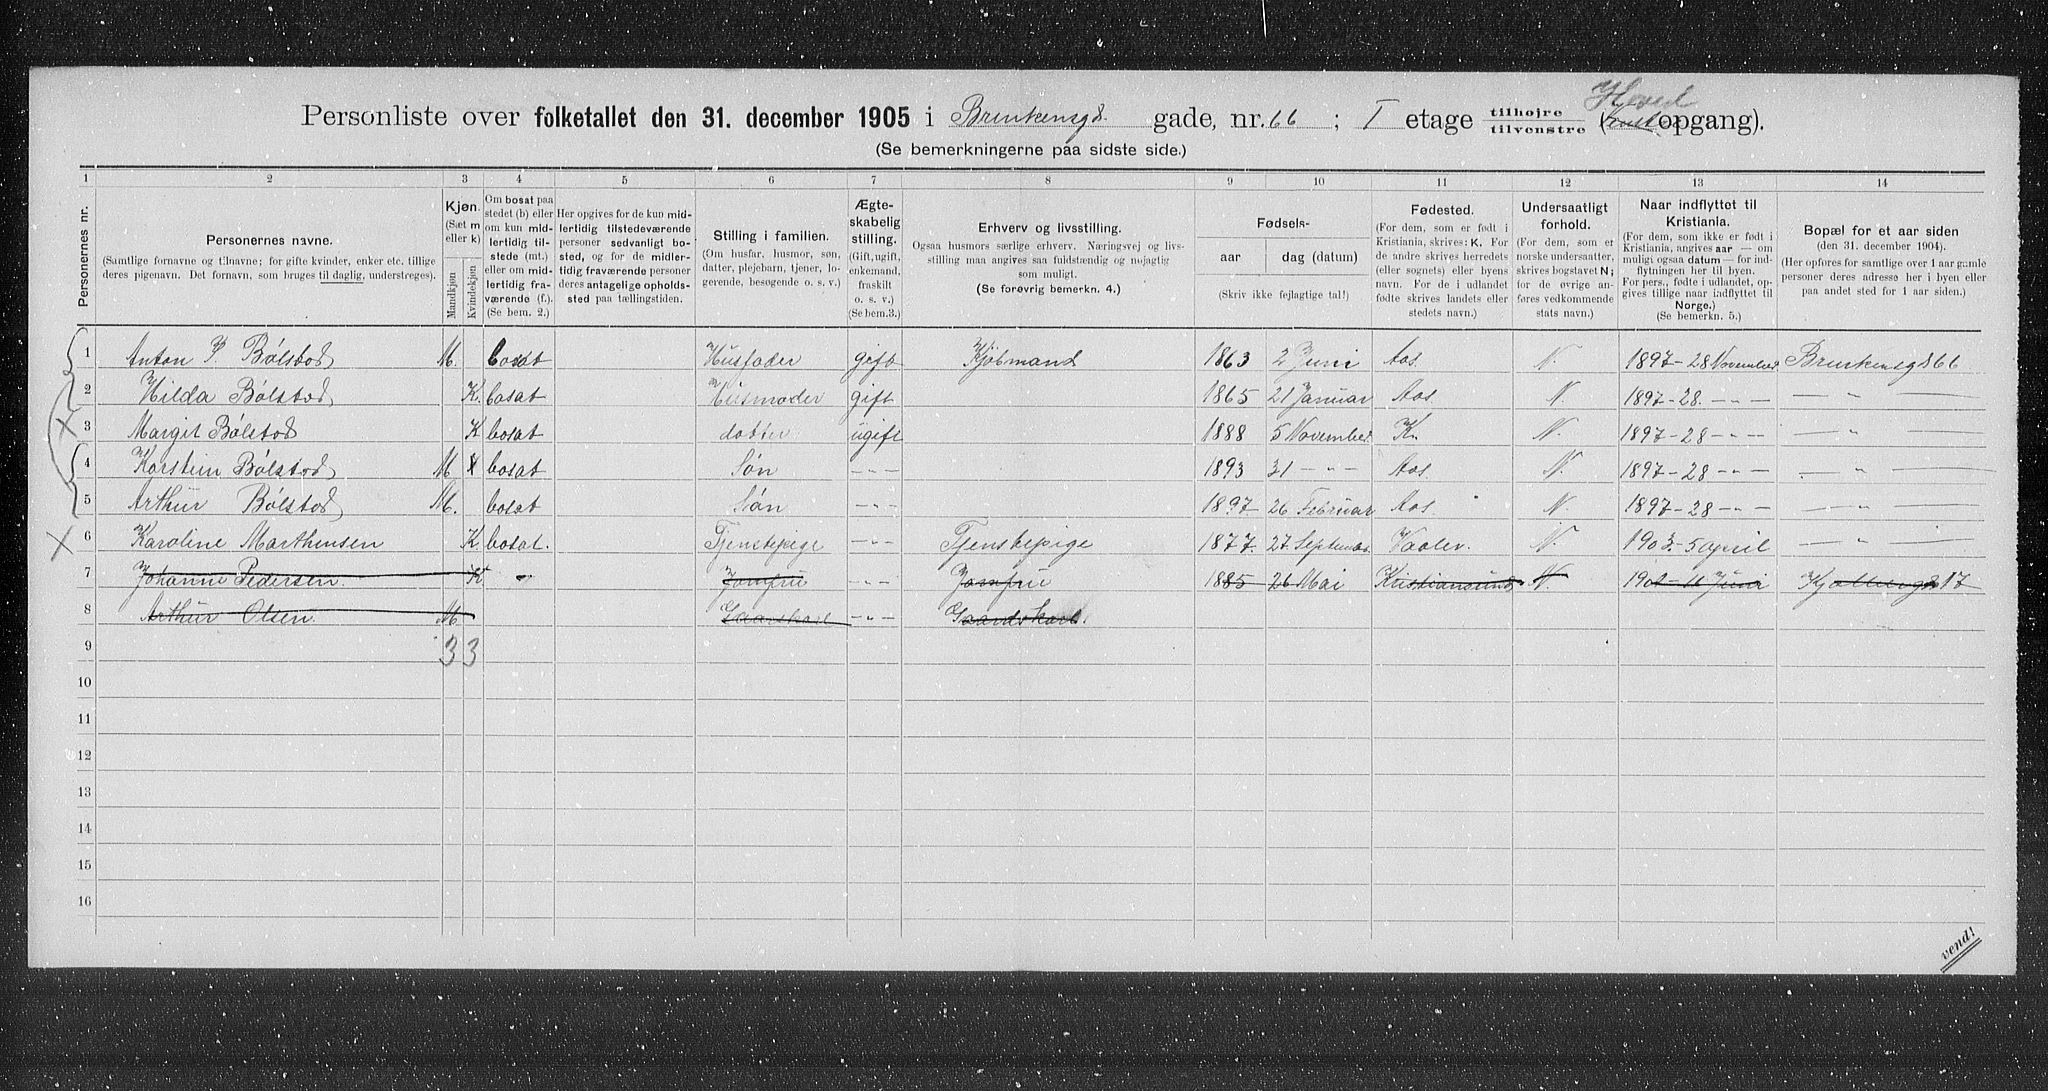 Personliste over folketallet den 31. december 1905 i Brinkensgd. gade, nr. 66 ; I etage tilhøire tilvenstre ( Hoved opgang).
(Se bemerkningerne paa sidste side.)
1 2 3 4 5 6 7 8 9 10 11 12 13 14
Personernes nr.
Personernes navne.
(Samtlige fornavne og tilnavne; for gifte kvinder, enker etc. tillige
deres pigenavn. Det fornavn, som bruges til daglig, understreges).
Kjøn.
(Sæt m
eller k)
Mandkjøn
Kvindekjøn
Om bosat paa
stedet (b) eller
om kun mid-
lertidig til-
stede (mt.)
eller om mid-
lertidig fra-
værende (f.).
(Se bem. 2.)
Her opgives for de kun mid-
lertidig tilstedeværende
personer sedvanligt bo-
sted, og for de midler-
tidig fraværende personer
deres antagelige opholds-
sted paa tællingstiden.
Stilling i familien.
(Om husfar, husmor, søn,
datter, plejebarn, tjener, lo-
gerende, besøgende o. s. v.)
Ægte-
skabelig
stilling.
(Gift, ugift,
enkemand,
fraskilt
o. s. v.)
(Se bem.3.)
Erhverv og livsstilling.
Ogsaa husmors særlige erhverv. Næringsvej og livs-
stilling maa angives saa fuldstændig og nøjagtig
som muligt.
(Se forøvrig bemerkn. 4.)
Fødsels-
aar
dag (datum)
(Skriv ikke fejlagtige tal!)
Fødested.
(For dem, som er født i
Kristiania, skrives: K. For
de andre skrives herredets
(eller sognets) eller byens
navn. For de i udlandet
fødte skrives landets eller
stedets navn.)
Undersaatligt
forhold.
(For dem, som er
norske undersaatter,
skrives bogstavet N;
for de øvrige an-
føres vedkommende
stats navn.)
Naar indflyttet til
Kristiania.
(For dem, som ikke er født i
Kristiania, angives aar — om
muligt ogsaa datum — for ind-
flytningen her til byen.
For pers., fødte i udlandet, op-
gives tillige naar indflyttet til
Norge.)
(Se bemerkn. 5.)
Bopæl for et aar siden
(den 31. december 1904).
(Her opføres for samtlige over 1 aar gamle
personer deres adresse her i byen eller
paa andet sted for 1 aar siden.)
1 Anton P. Bølstad M. bosat Husfader gift Kjøbmand 1863 2 Juni Aas. N. 1897 - 28 November Brinkensgd 66
2 Hilda Bølstad K. bosat Husmoder gift 1865 21 Januar Aas N. 1897 - 28. - " - — " —
3 Margit Bølstad K bosat datter ugift 1888 5 November K. N. 1897 - 28 - " - — " —
4 Karstein Bølstad M. bosat Søn - " - 1893 31 - " - Aas. N. 1897 - 28 - " - — " —
5 Arthur Bølstad M. bosat Søn - " - 1897 26 Februar Aas. N. 1897 - 28 - " - — " —
6 Karoline Marthinsen K. bosat. Tjenstepige - " - Tjenstepige 1877. 27. Septemb. Vaaler. N. 1903. 5 april — " —
7 Johanne Pedersen. K - Jomfru - " - Jomfru 1885 26 Mai Kristiansund N. Juni 17
8 Arthur Olsen. M. Gaardskarl - " - Gaardskarl.
9 3 3
10
11
12
13
14
15
16
vend!